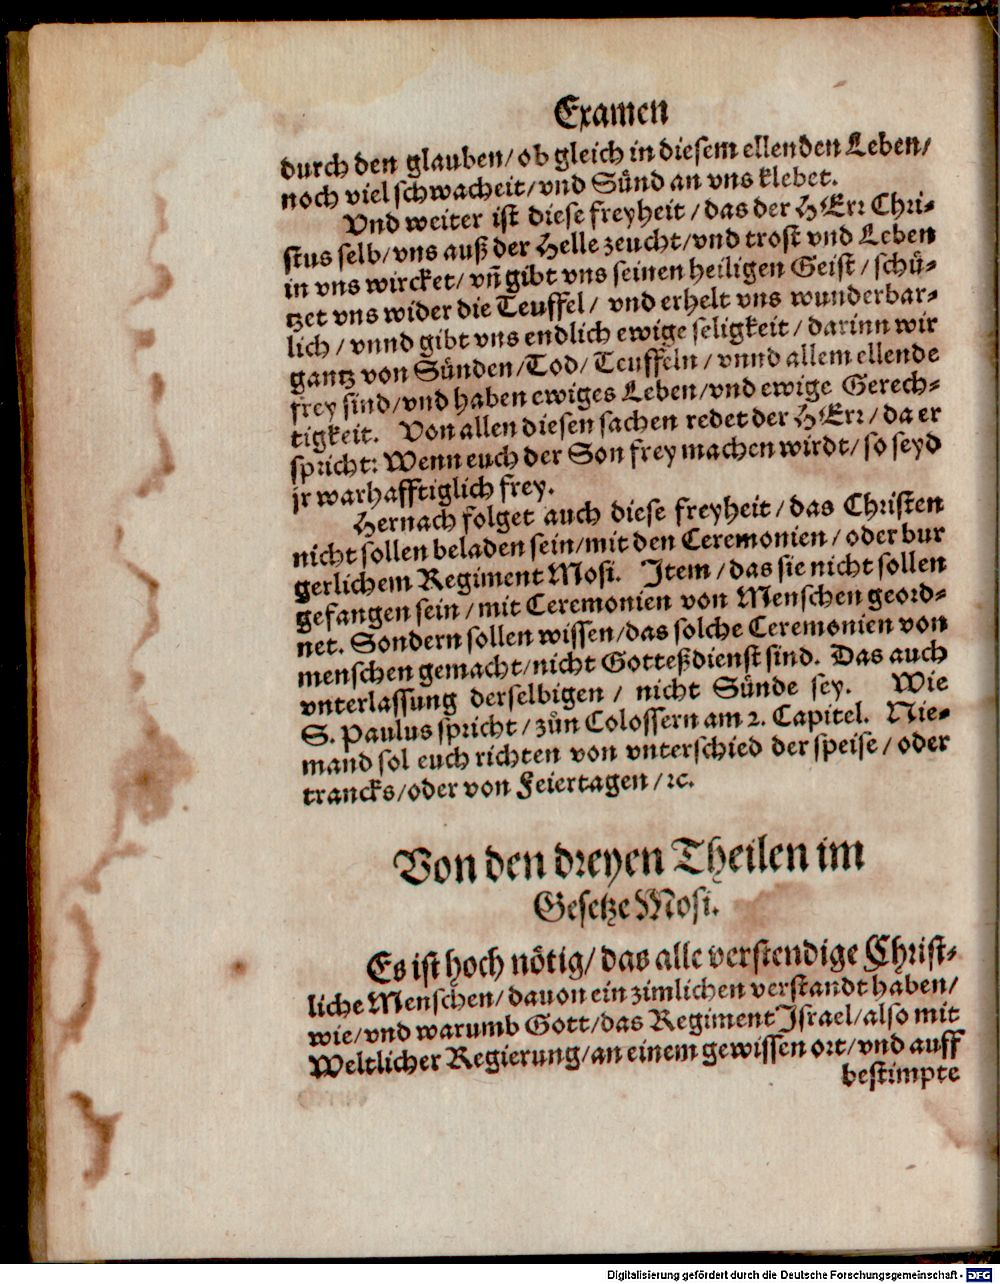 Examen
durch den glauben/ ob gleich in diesem ellenden Leben/
noch viel schwacheit/ vnd Sünd an vns klebet.
Vnd weiter ist diese freyheit / das der HErr Chri-
stus selb/ vns auß der Helle zeucht/ vnd trost vnd Leben
in vns wircket/ vñ gibt vns seinen heiligen Geist / schü-
tzet vns wider die Teuffel / vnd erhelt vns wunderbar-
lich / vnnd gibt vns endlich ewige seligkeit / darinn wir
gantz von Sünden/ Tod/ Teuffeln / vnnd allem ellende
frey sind/ vnd haben ewiges Leben/ vnd ewige Gerech-
tigkeit. Von allen diesen sachen redet der HErr / da er
spricht: Wenn euch der Son frey machen wirdt/ so seyd
jr warhafftiglich frey.
Hernach folget auch diese freyheit / das Christen
nicht sollen beladen sein/ mit den Ceremonien / oder bur
gerlichem Regiment Mosi. Item / das sie nicht sollen
gefangen sein / mit Ceremonien von Menschen geord-
net. Sondern sollen wissen/ das solche Ceremonien von
menschen gemacht/ nicht Gotteßdienst sind. Das auch
vnterlassung derselbigen / nicht Sünde sey. Wie
S. Paulus spricht / zůn Colossern am 2. Capitel. Nie-
mand sol euch richten von vnterschied der speise / oder
trancks/ oder von Feiertagen / ꝛc.
Von den dreyen Theilen im
Gesetze Mosi.
Es ist hoch nötig/ das alle verstendige Christ-
liche Menschen/ dauon ein zimlichen verstandt haben/
wie/ vnd warumb Gott/ das Regiment Israel/ also mit
Weltlicher Regierung/ an einem gewissen ort/ vnd auff
bestimpte
Digitalisierung gefördert durch die Deutsche Forschungsgemeinschaft - DFG